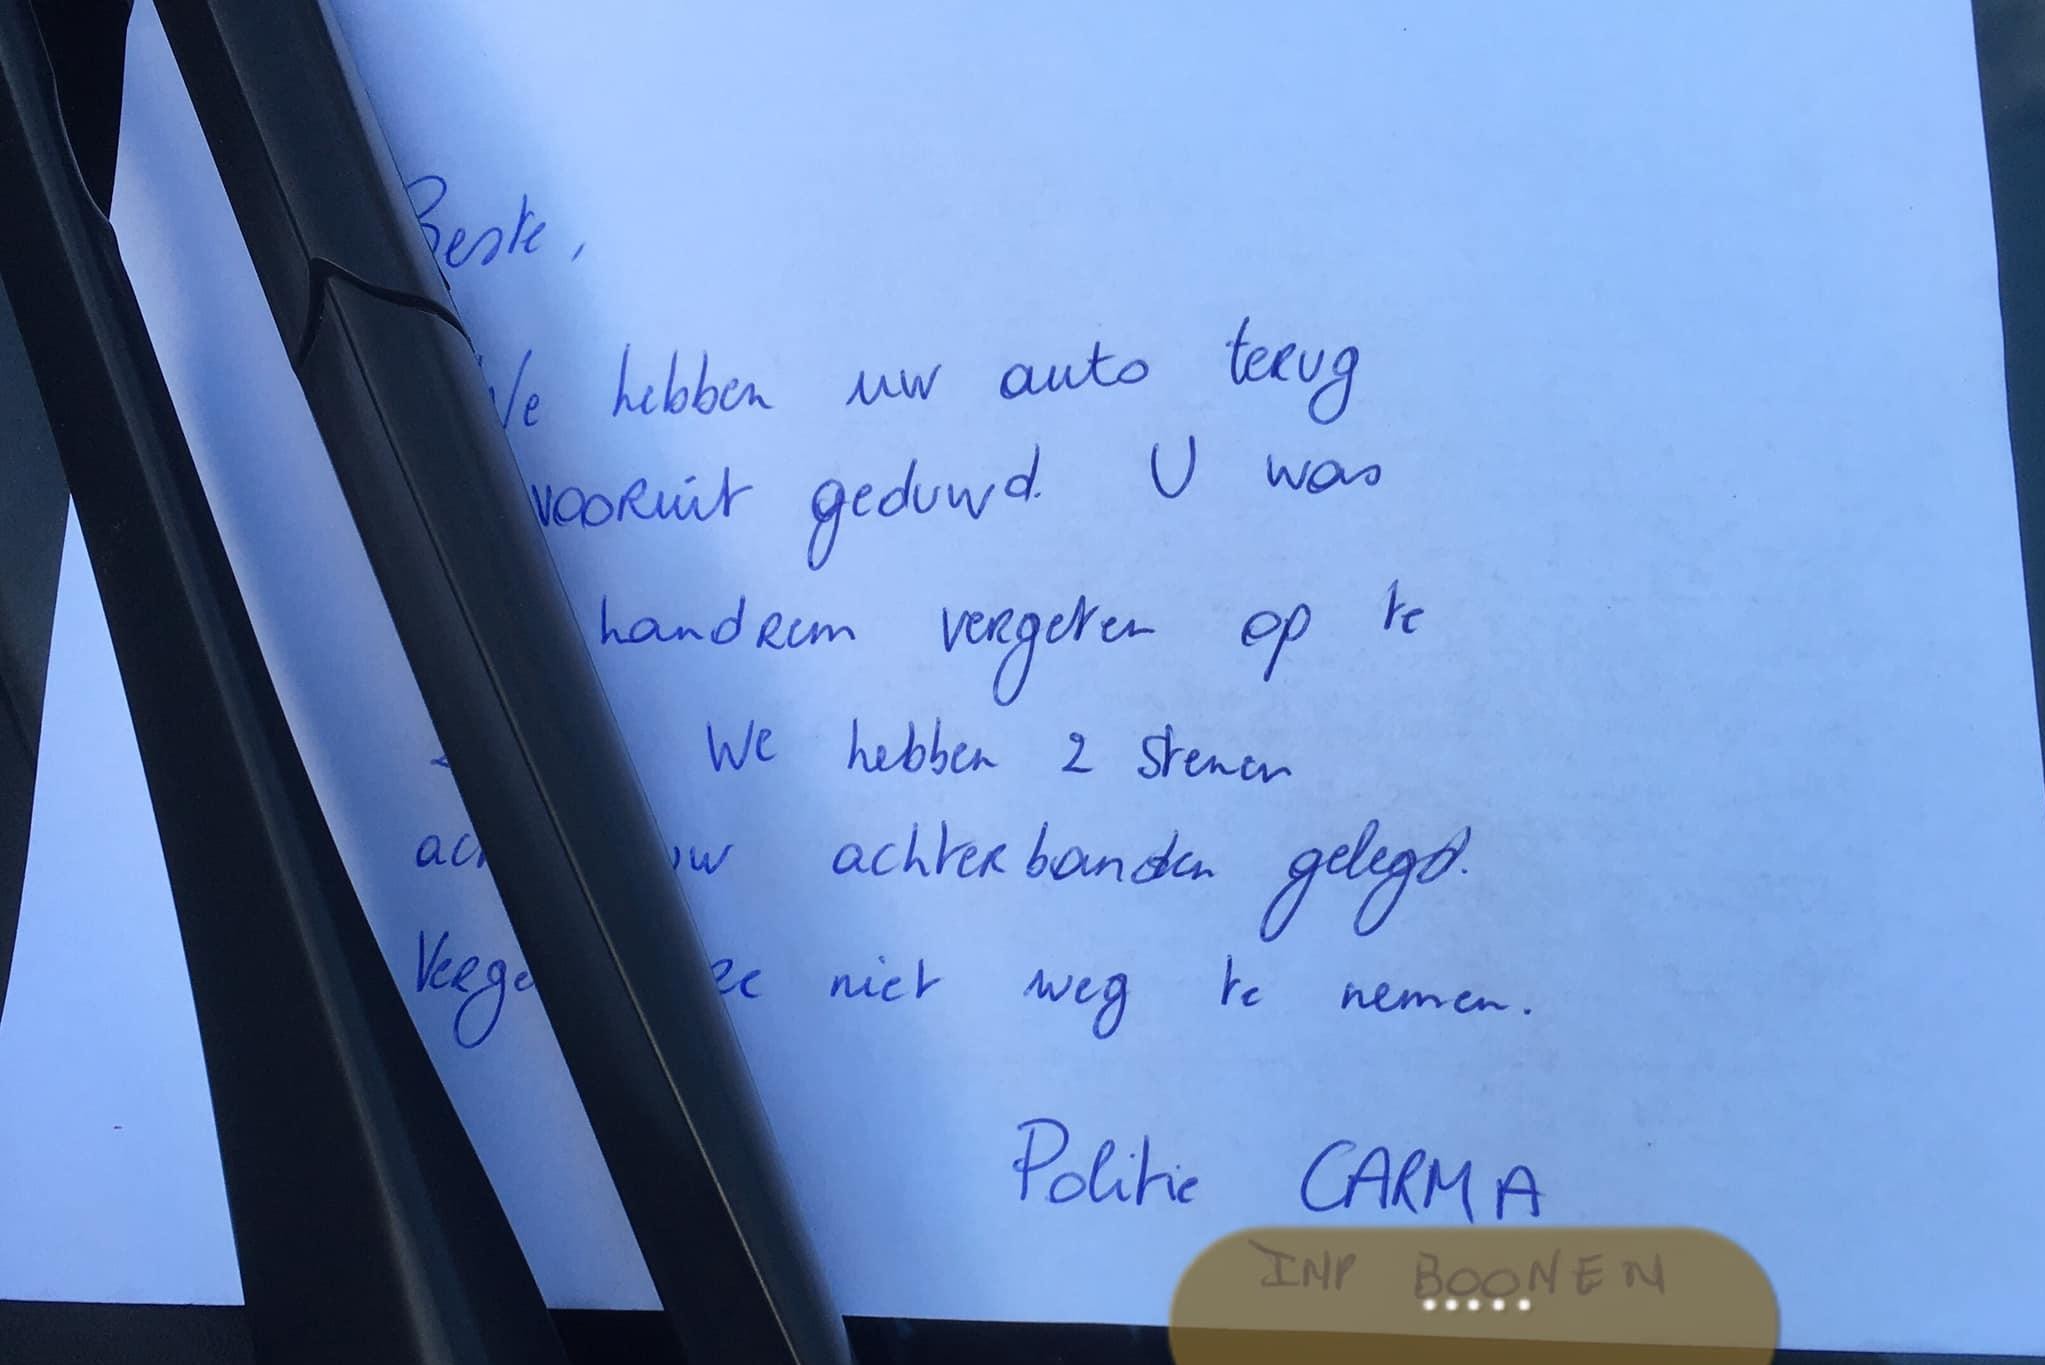 Beste,
We hebben uw auto terug
vooruit geduwd. U was
handrem vergeten op te
We hebben 2 stenen
uw achterbanden gelegd.
niet weg te nemen.
Politie CARMA
INP BOONEN